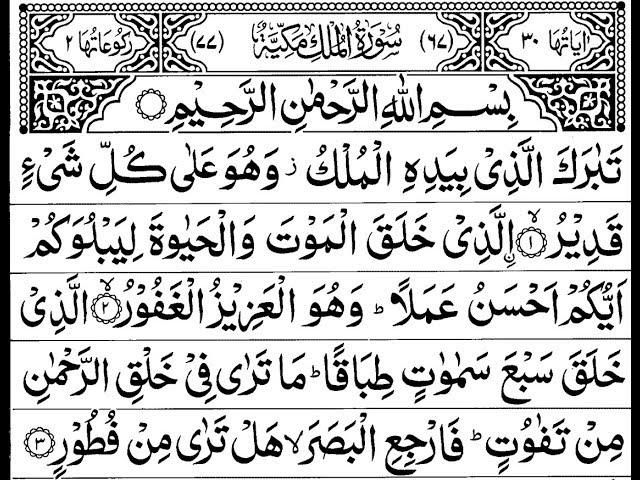 اٰیَاتُهَا ٣٠ (٦٧) سُوْرَةُ الْمُلْكِ مَكِّیَّةٌ (٧٧) رُكُوْعَاتُهَا ٢
بِسْمِ اللّٰهِ الرَّحْمٰنِ الرَّحِیْمِ
تَبٰرَكَ الَّذِیْ بِیَدِهِ الْمُلْكُ ز وَهُوَ عَلٰی كُلِّ شَیْءٍ
قَدِیْرُ ۙ﴿١﴾ ن الَّذِیْ خَلَقَ الْمَوْتَ وَالْحَیٰوةَ لِیَبْلُوَكُمْ
اَیُّكُمْ اَحْسَنُ عَمَلًا ؕ وَهُوَ الْعَزِیْزُ الْغَفُوْرُ ۙ﴿٢﴾ الَّذِیْ
خَلَقَ سَبْعَ سَمٰوٰتٍ طِبَاقًا ؕ مَا تَرٰی فِیْ خَلْقِ الرَّحْمٰنِ
مِنْ تَفٰوُتٍ ؕ فَارْجِعِ الْبَصَرَ ۙ هَلْ تَرٰی مِنْ فُطُوْرٍ ﴿٣﴾